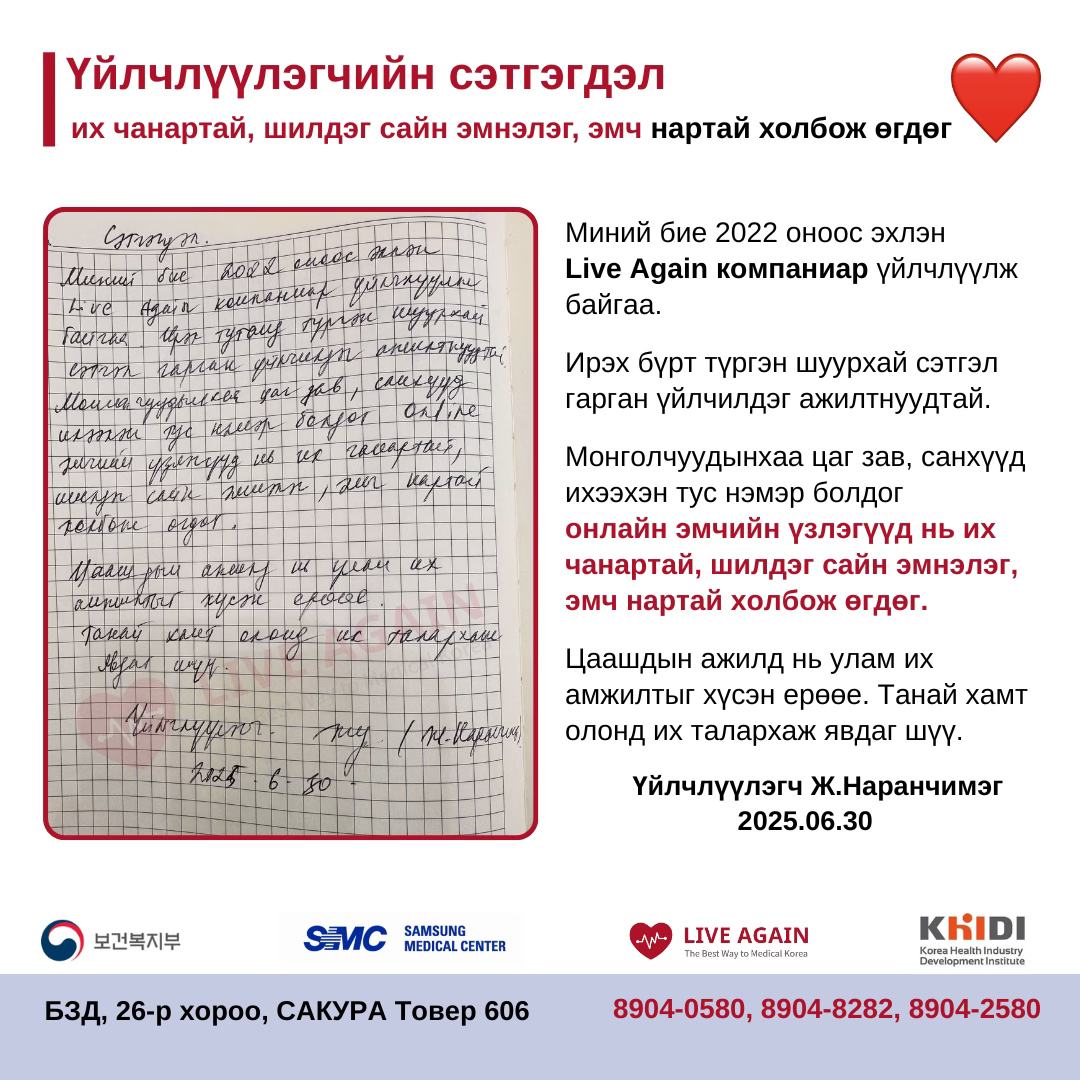 Үйлчлүүлэгчийн сэтгэгдэл
их чанартай, шилдэг сайн эмнэлэг, эмч нартай холбож өгдөг
Сэтгэгдэл.
Миний бие 2022 оноос эхлэн
Live Again компаниар үйлчлүүлж
байгаа. Ирэх түргэн шуурхай
сэтгэл гарган үйлчилдэг ажилтнуудтай.
Монголчуудынхаа цаг зав, санхүүд
ихээхэн тус нэмэр болдог Online
эмчийн үзлэгүүд нь их чанартай,
шилдэг сайн эмнэлэг, эмч нартай
холбож өгдөг.
Цаашдын ажилд нь улам их
амжилтыг хүсэн ерөөе.
Танай хамт олонд их талархаж
явдаг шүү.
Үйлчлүүлэгч. (Ж.Наранчимэг)
2025-6-30
LIVE AGAIN
Миний бие 2022 оноос эхлэн
Live Again компаниар үйлчлүүлж
байгаа.
Ирэх бүрт түргэн шуурхай сэтгэл
гарган үйлчилдэг ажилтнуудтай.
Монголчуудынхаа цаг зав, санхүүд
ихээхэн тус нэмэр болдог
онлайн эмчийн үзлэгүүд нь их
чанартай, шилдэг сайн эмнэлэг,
эмч нартай холбож өгдөг.
Цаашдын ажилд нь улам их
амжилтыг хүсэн ерөөе. Танай хамт
олонд их талархаж явдаг шүү.
Үйлчлүүлэгч Ж.Наранчимэг
2025.06.30
보건복지부
SMC SAMSUNG
MEDICAL CENTER
LIVE AGAIN
The Best Way to Medical Korea
KHIDI
Korea Health Industry
Development Institute
БЗД, 26-р хороо, САКУРА Товер 606
8904-0580, 8904-8282, 8904-2580